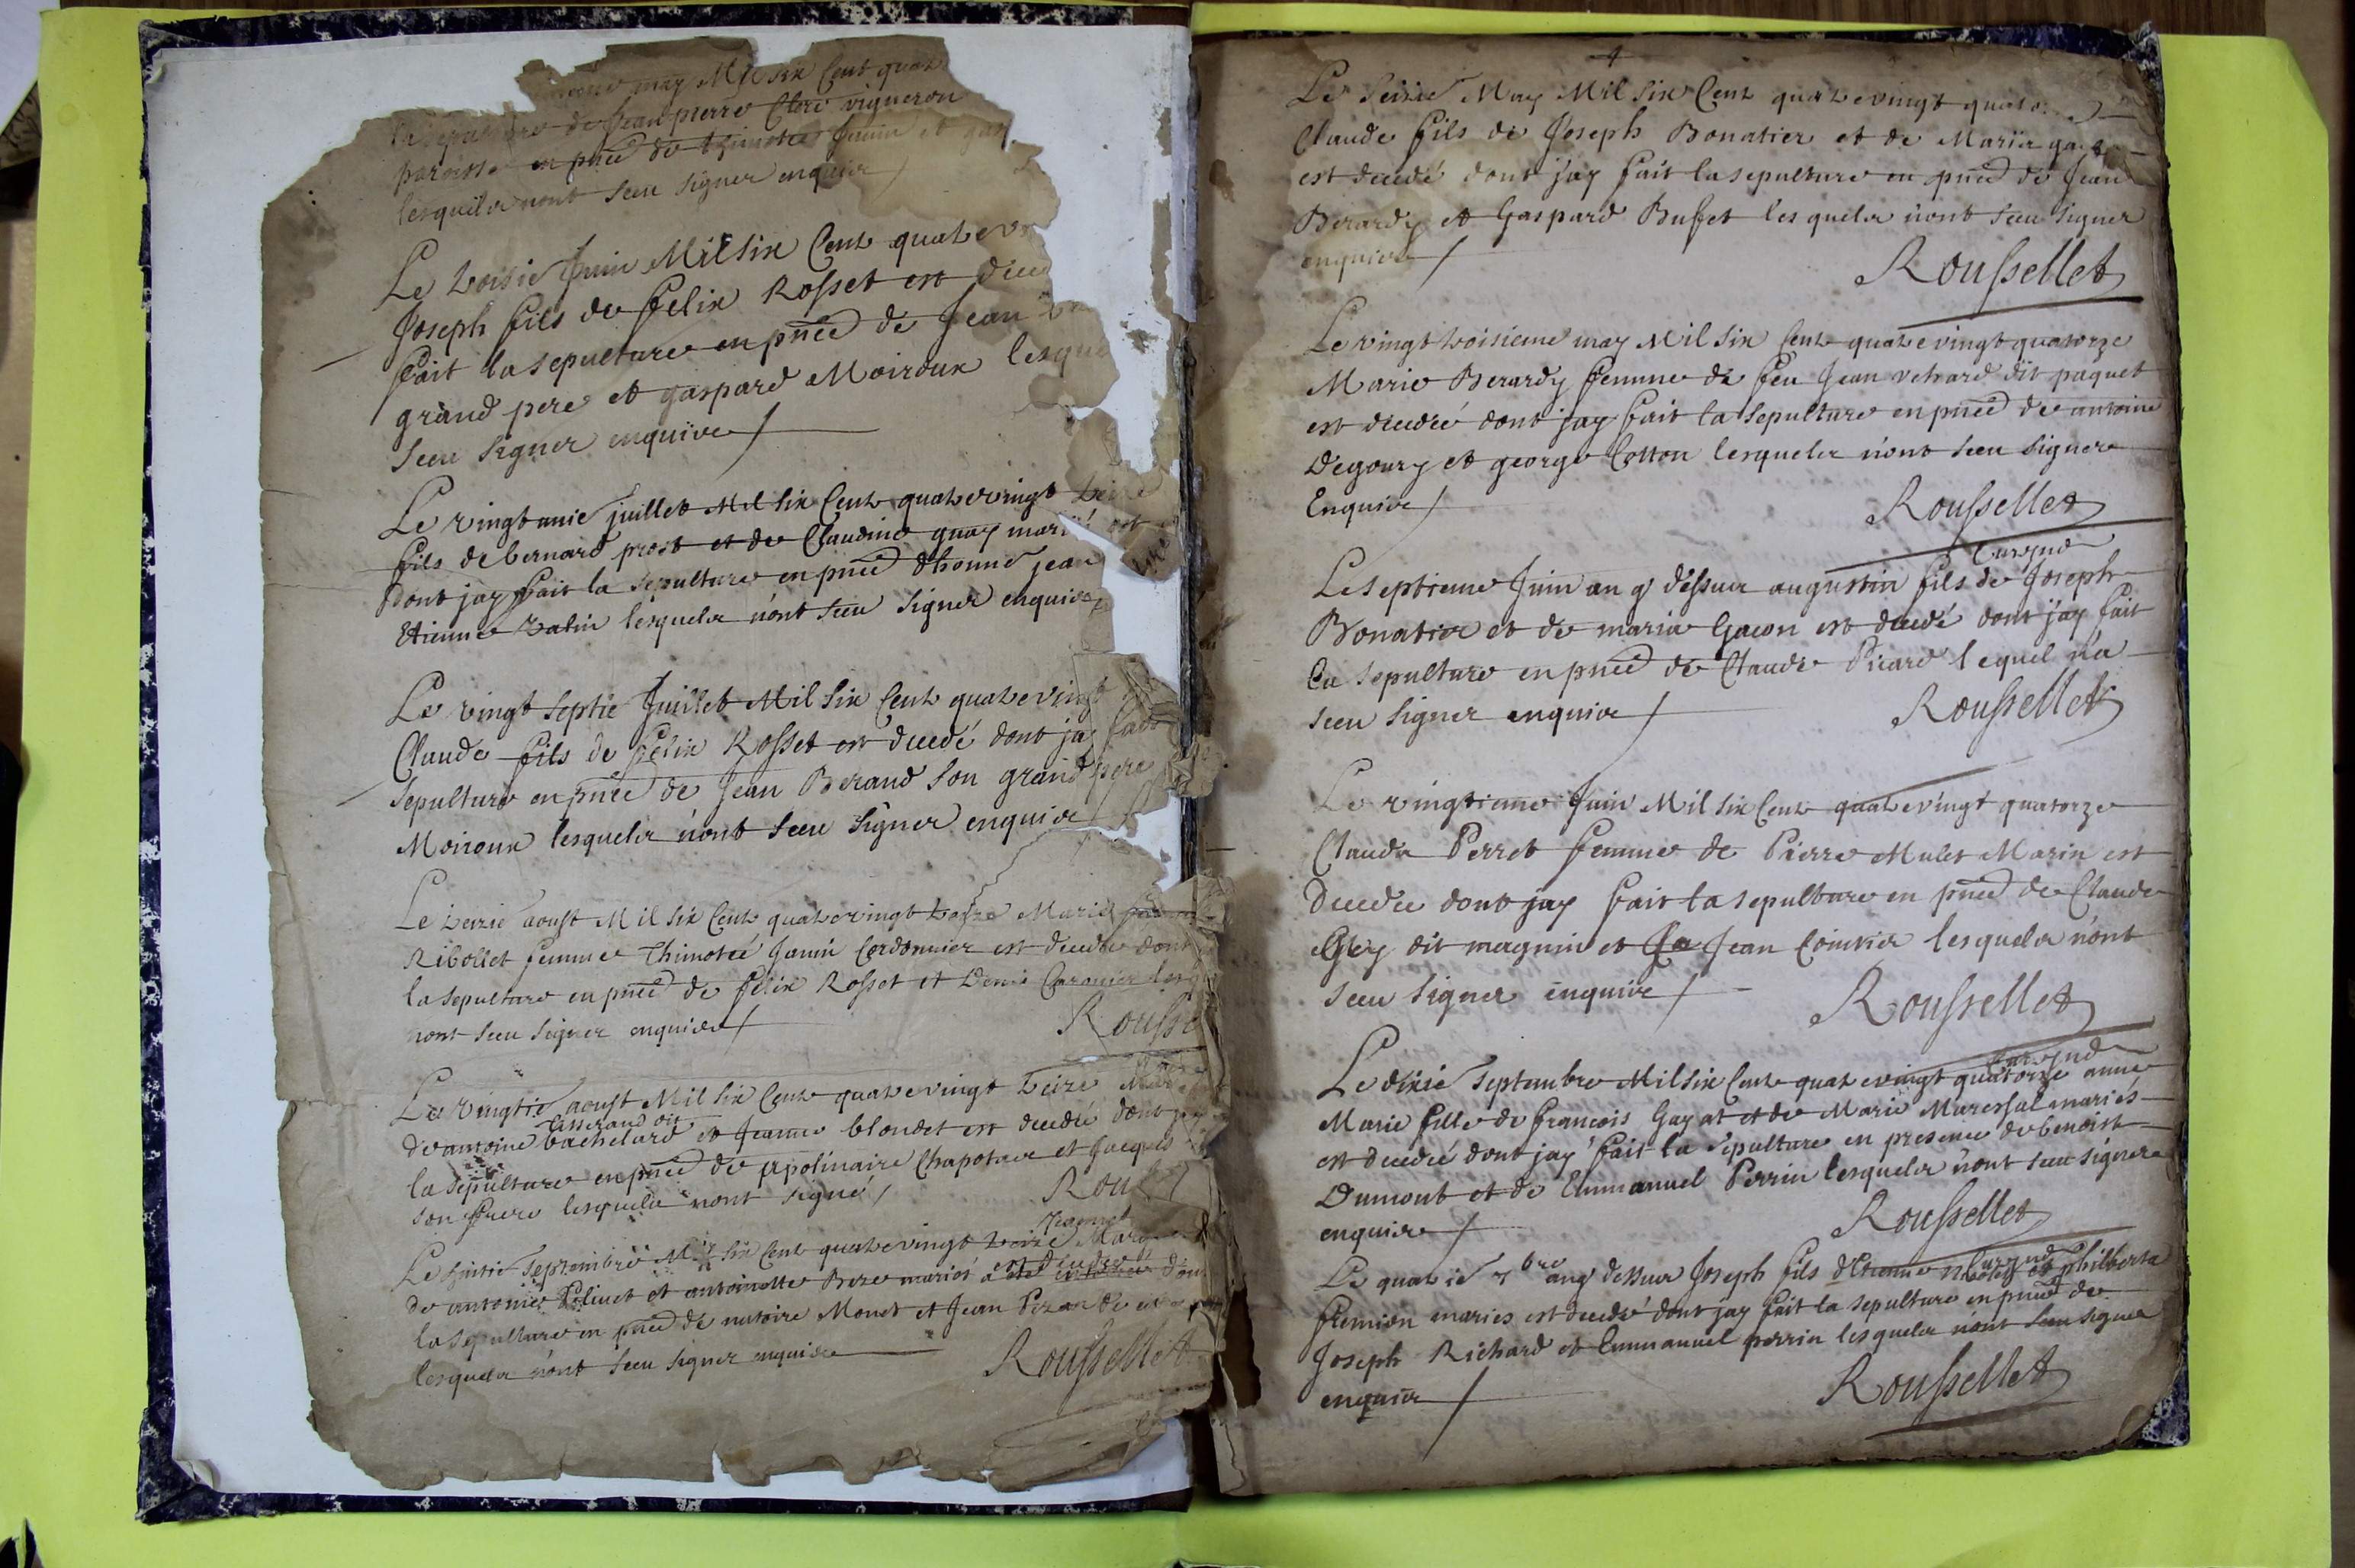 may Mil six Cent quat
de Jean pierre Clerc vigneron
paroisse en pñce de thimotée Jamin et gas
lesquels nont sceu signer enquis
Le troisie Juin Mil six Cent quatrev
Joseph fils de felix Rosset est deced
fait la sepulture en pñce de Jean
grand pere et gaspard Moiroux lesque
sceu signer enquis
Le vingt unie juillet Mil six Cent quatrevingt treize
fils de bernard prost et de Claudine guay mariés est
dont jay fait la sepulture en pñce dhonne jean
Etienne ratin lesquels n'ont sceu signer enquis
Le vingt septie Juillet Mil six Cent quatrevingt
Claude fils de felix Rosset est decedé dont jay fait
sepulture en pñce de Jean Beraud son grand pere
Moiroux lesquels n'ont sceu signer enquis
Le aoust Mil six Cent quatrevingt treize Marie
Ribollet femme Thimoteé Jamin Cordonnier est decedée dont
la sepulture en pñce de felix Rosset et Denis les
nont sceu signer enquis
Rousse
Le vingtie aoust Mil six Cent quatrevingt treize
tisserand dit
de antoine bachelard et Jeanne blondet est decedé dont
la sepulture en pñce de apolinaire Chapotau et Jacques
son frere lesquels nont signé
Rouss
Le huitie septembre Mil six Cent quatrevingt treize
de antoine Polinet et antoinette mariés est decedée dont
la sepulture en pñce de Monet et Jean
lesquels n'ont sceu signer enquis
Roussellet
4
Le seizie May Mil six Cent quatrevingt quato
Claude fils de Joseph Bonatier et de Marie
est decedé dont jay fait la sepulture en pñce de Jean
Berardy et Gaspard Buffet lesquels n'ont sceu signer
enquis
Roussellet
Le vingt troisieme may Mil six Cent quatrevingt quatorze
Marie Berardy femme de feu Jean vetrard dit paquet
est decedée dont jay fait la sepulture en pñce de antoine
Degoury et george Cotton lesquels n'ont sceu signer
Enquis
Roussellet
Le septieme Juin an q dessus augustin fils de Joseph
Bonatier et de marie Gacon est decedé dont j'ay fait
la sepulture en pñce de Claude Picard lequel n'a
sceu signer enquis
Roussellet
Le vingtieme Juin Mil six Cent quatrevingt quatorze
Claude Perret femme de Pierre Mulet Marin est
decedée dont jay fait la sepulture en pñce de Claude
Gey dit magnin et Jean Cointier lesquels n'ont
sceu signer enquis
Roussellet
Le dixie septembre Mil six Cent quatrevingt quatorze anne
Marie fille de francois Gayat et de Marie Mareschal mariés
est decedée dont jay fait la sepulture en presence de benoist
Dumont et de Emmanuel Perrin lesquels n'ont sceu signer
enquis
Roussellet
Le quatrie 7bre anq dessus Joseph fils d'Etienne et philberte
fremion mariés est decedé dont jay fait la sepulture en pñce de
Joseph Richard et Emmanuel perrin lesquels n'ont sceu signer
enquis
Roussellet